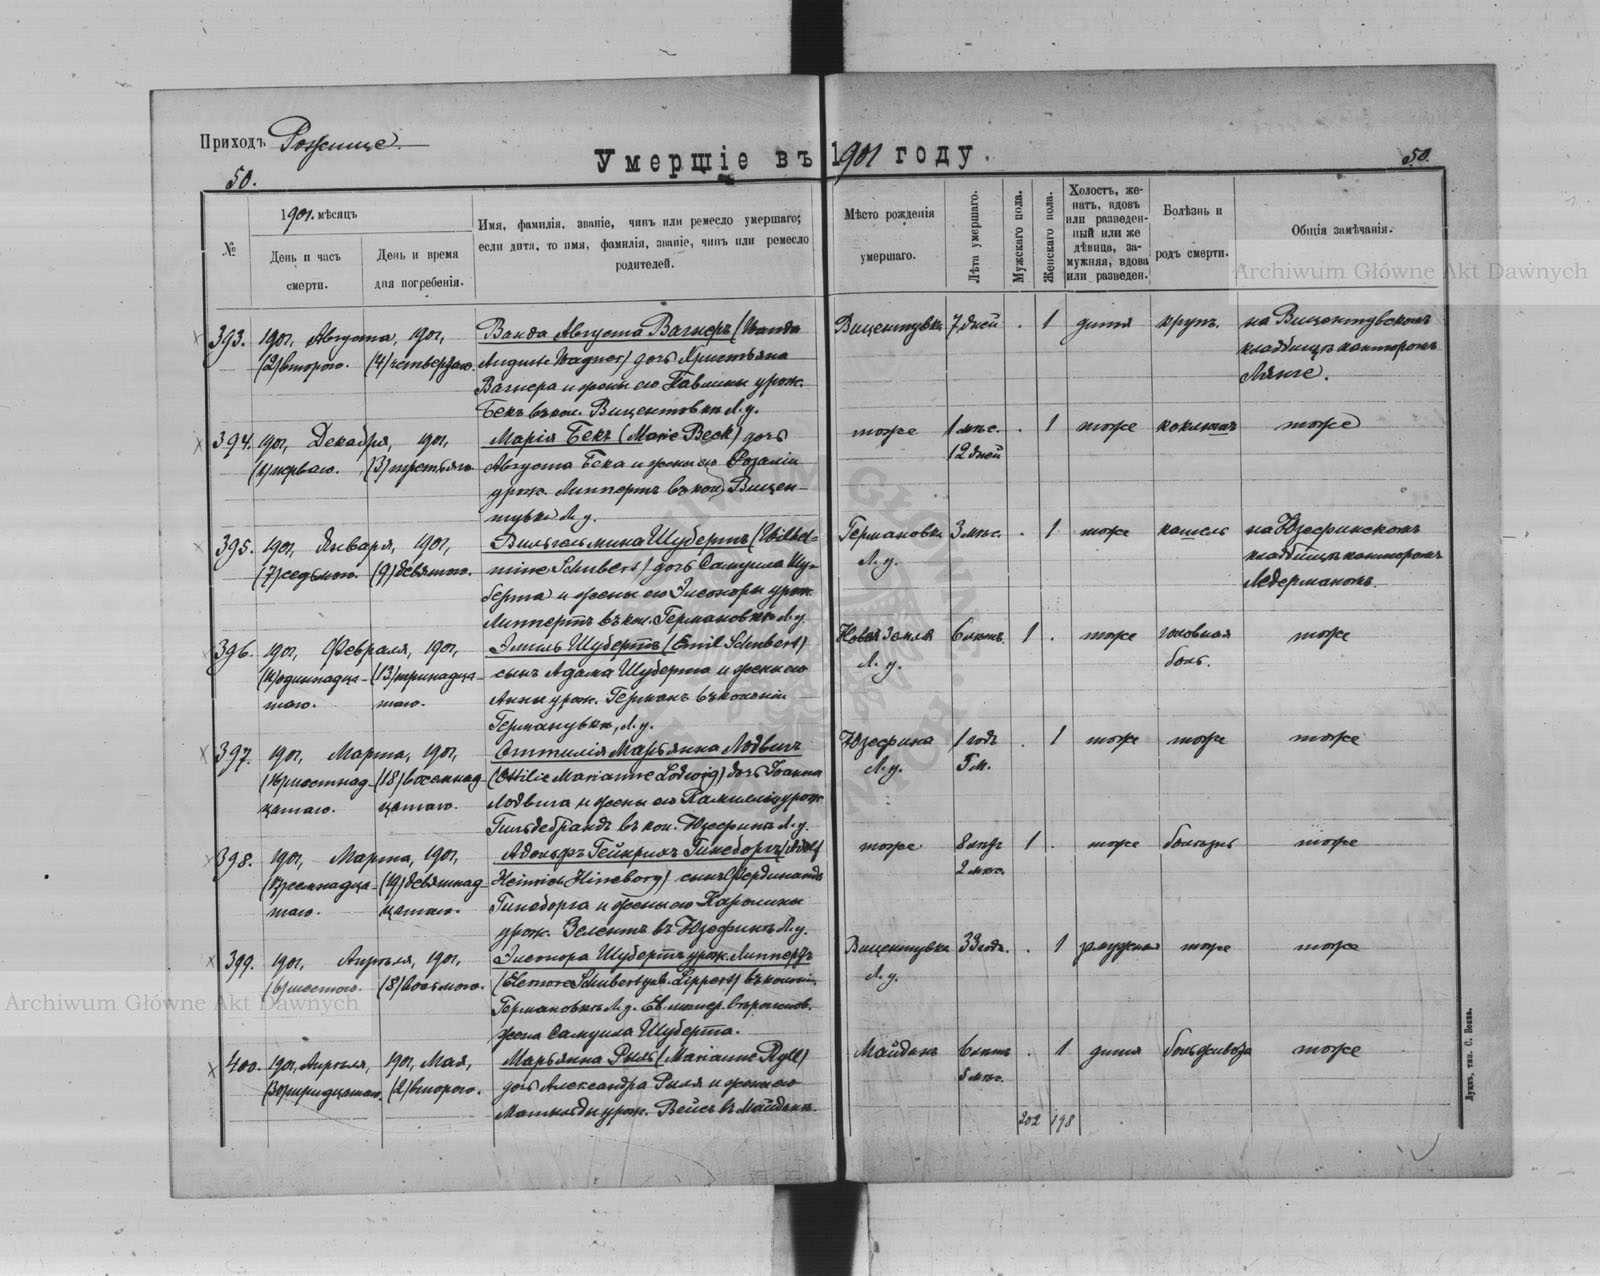 Приходъ Рожище.
Умершіе въ 1901 году.
50.
50.
№
1901. мѣсяцъ
День и часъ
смерти.
День и время
дня погребенія.
Имя, фамилія, званіе, чинъ или ремесло умершаго;
если дитя, то имя, фамилія, званіе, чинъ или ремесло
родителей.
Мѣсто рожденія
умершаго.
Лѣта умершаго.
Мужскаго пола.
Женскаго пола.
Холостъ, же-
натъ, вдовъ
или разведен-
ный или же
дѣвица, за-
мужняя, вдова
или разведен.
Болѣзнь и
родъ смерти.
Общія замѣчанія.
393. 1901, Августа, 1901, Ванда Августа Вагнеръ (Wanda Вицентувка 7. дней . 1 дитя крупъ. на Вицентувскомъ
(2) второго. (4) четвертаго. Auguste Wagner) дочь Христьяна кладбищѣ канторомъ
Вагнера и жены его Павлины урож. Лянге.
Бекъ въ кол. Вицентовкѣ Л. у.
394. 1901, Декабря, 1901, Марія Бекъ (Marie Beck) дочь тоже 1 мѣс. . 1 тоже коклюшъ тоже
(1) перваго. (3) третьяго Августа Бека и жены его Розаліи 12 дней
урож. Липпертъ въ кол. Вицен-
тувкѣ Л. у.
395. 1901, Января, 1901, Вильгельмина Шубертъ (Wilhel- Германовка 3 мѣс. . 1 тоже кашель на Юзефинскомъ
(7) седьмого. (9) девятого. mine Schubert) дочь Самуила Шу- Л. у. кладбищѣ канторомъ
берта и жены его Элеоноры урож. Ледерманомъ.
Липпертъ въ кол. Германовкѣ Л. у.
396. 1901, Февраля, 1901, Эмиль Шубертъ (Emil Schubert) Новая Земля 6 лѣтъ. 1 . тоже головная тоже
(11) одиннадца- (13) тринадца- сынъ Адама Шуберта и жены его Л. у. боль.
таго. таго. Анны урож. Германъ въ колоніи
Германувкѣ, Л. у.
397. 1901, Марта, 1901, Оттилія Марьянна Лодвигъ Юзефина 1 годъ . 1 тоже тоже тоже
(16) шестнад- (18) восемнад- (Ottilie Marianne Lodwig) дочь Іоанна Л. у. 5 м.
цатаго. цатаго. Лодвига и жены его Камиллы урож.
Гильдебрандъ въ кол. Юзефинѣ Л. у.
398. 1901, Марта, 1901, Адольфъ Гейнрихъ Гинеборгъ (Adolf тоже 8 лѣтъ 1 . тоже болѣзнь тоже
(17) семнадца- (19) девятнад- Heinrich Hineborg) сынъ Фердинанда 2 мѣс.
таго. цатаго. Гинеборга и жены его Каролины
урож. Зелентъ въ Юзефинѣ Л. у.
399. 1901, Апрѣля, 1901, Элеонора Шубертъ урож. Липпертъ Вицентувка 33 годъ. . 1 замужняя тоже тоже
(6) шестого. (8) восьмого. (Eleonore Schubert geb. Lippert) въ колоніи Л. у.
Германовкѣ Л. у. Ев. лютер. вѣроисповѣд.
жена Самуила Шуберта.
400. 1901, Апрѣля, 1901, Мая, Марьянна Рыль (Marianne Ryll) Майданъ 6 лѣтъ . 1 дитя боль живота тоже
(30) тридцатаго. (2) второго. дочь Александра Рыля и жены его 5 мѣс.
Матильды урож. Вейсъ въ Майданѣ.
202 198
Луцкъ, тип. С. Бокна.
Archiwum Główne Akt Dawnych
Archiwum Główne Akt Dawnych